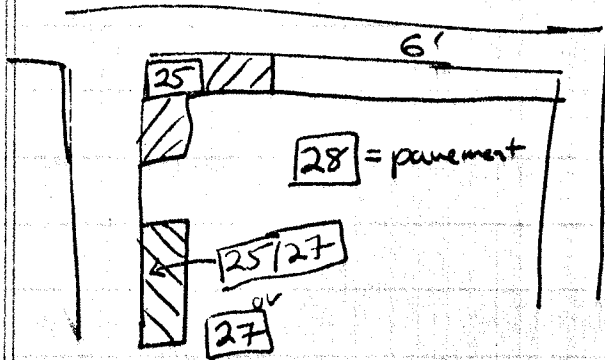 6'
25
28 = pavement
25/27
or
27